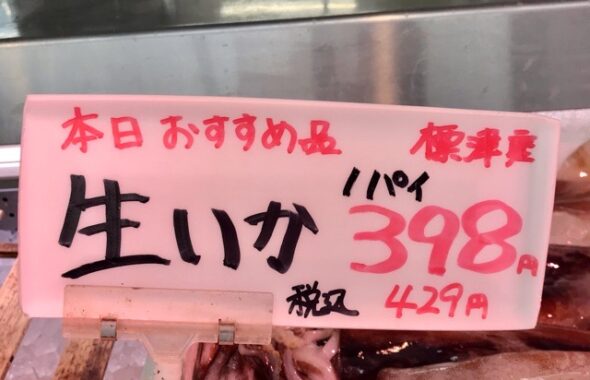 本日おすすめ品 標津産
生いか 1パイ 398円
税込 429円